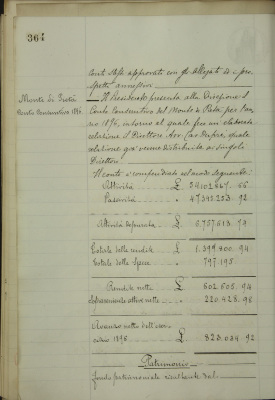 364
conti stessi approvati con gli allegati ed i pro-
spetti annessi.
Monte di Pietà
Conto Consuntivo 1896
Il Presidente presenta alla Direzione il
Conto Consuntivo del Monte di Pietà per l'an-
no 1896, intorno al quale fece un elaborata
relazione il Direttore quale
relazione già venne distribuita ai singoli
Direttori
Il conto è compendiato nel modo seguente:
Attività £
Passività " 47.341.253. 92
Attività depurata £ 6.757.613. 74
Totale delle rendite £ 1.399.800. 94
Totale delle Spese " 797.195
Rendite nette £ 602.605. 94
Sopravvenienze attive nette " 220.428. 98
Avanzo netto dell'eser-
cizio 1896 £ 823.034. 92
Patrimonio
Fondo patrimoniale risultante dal